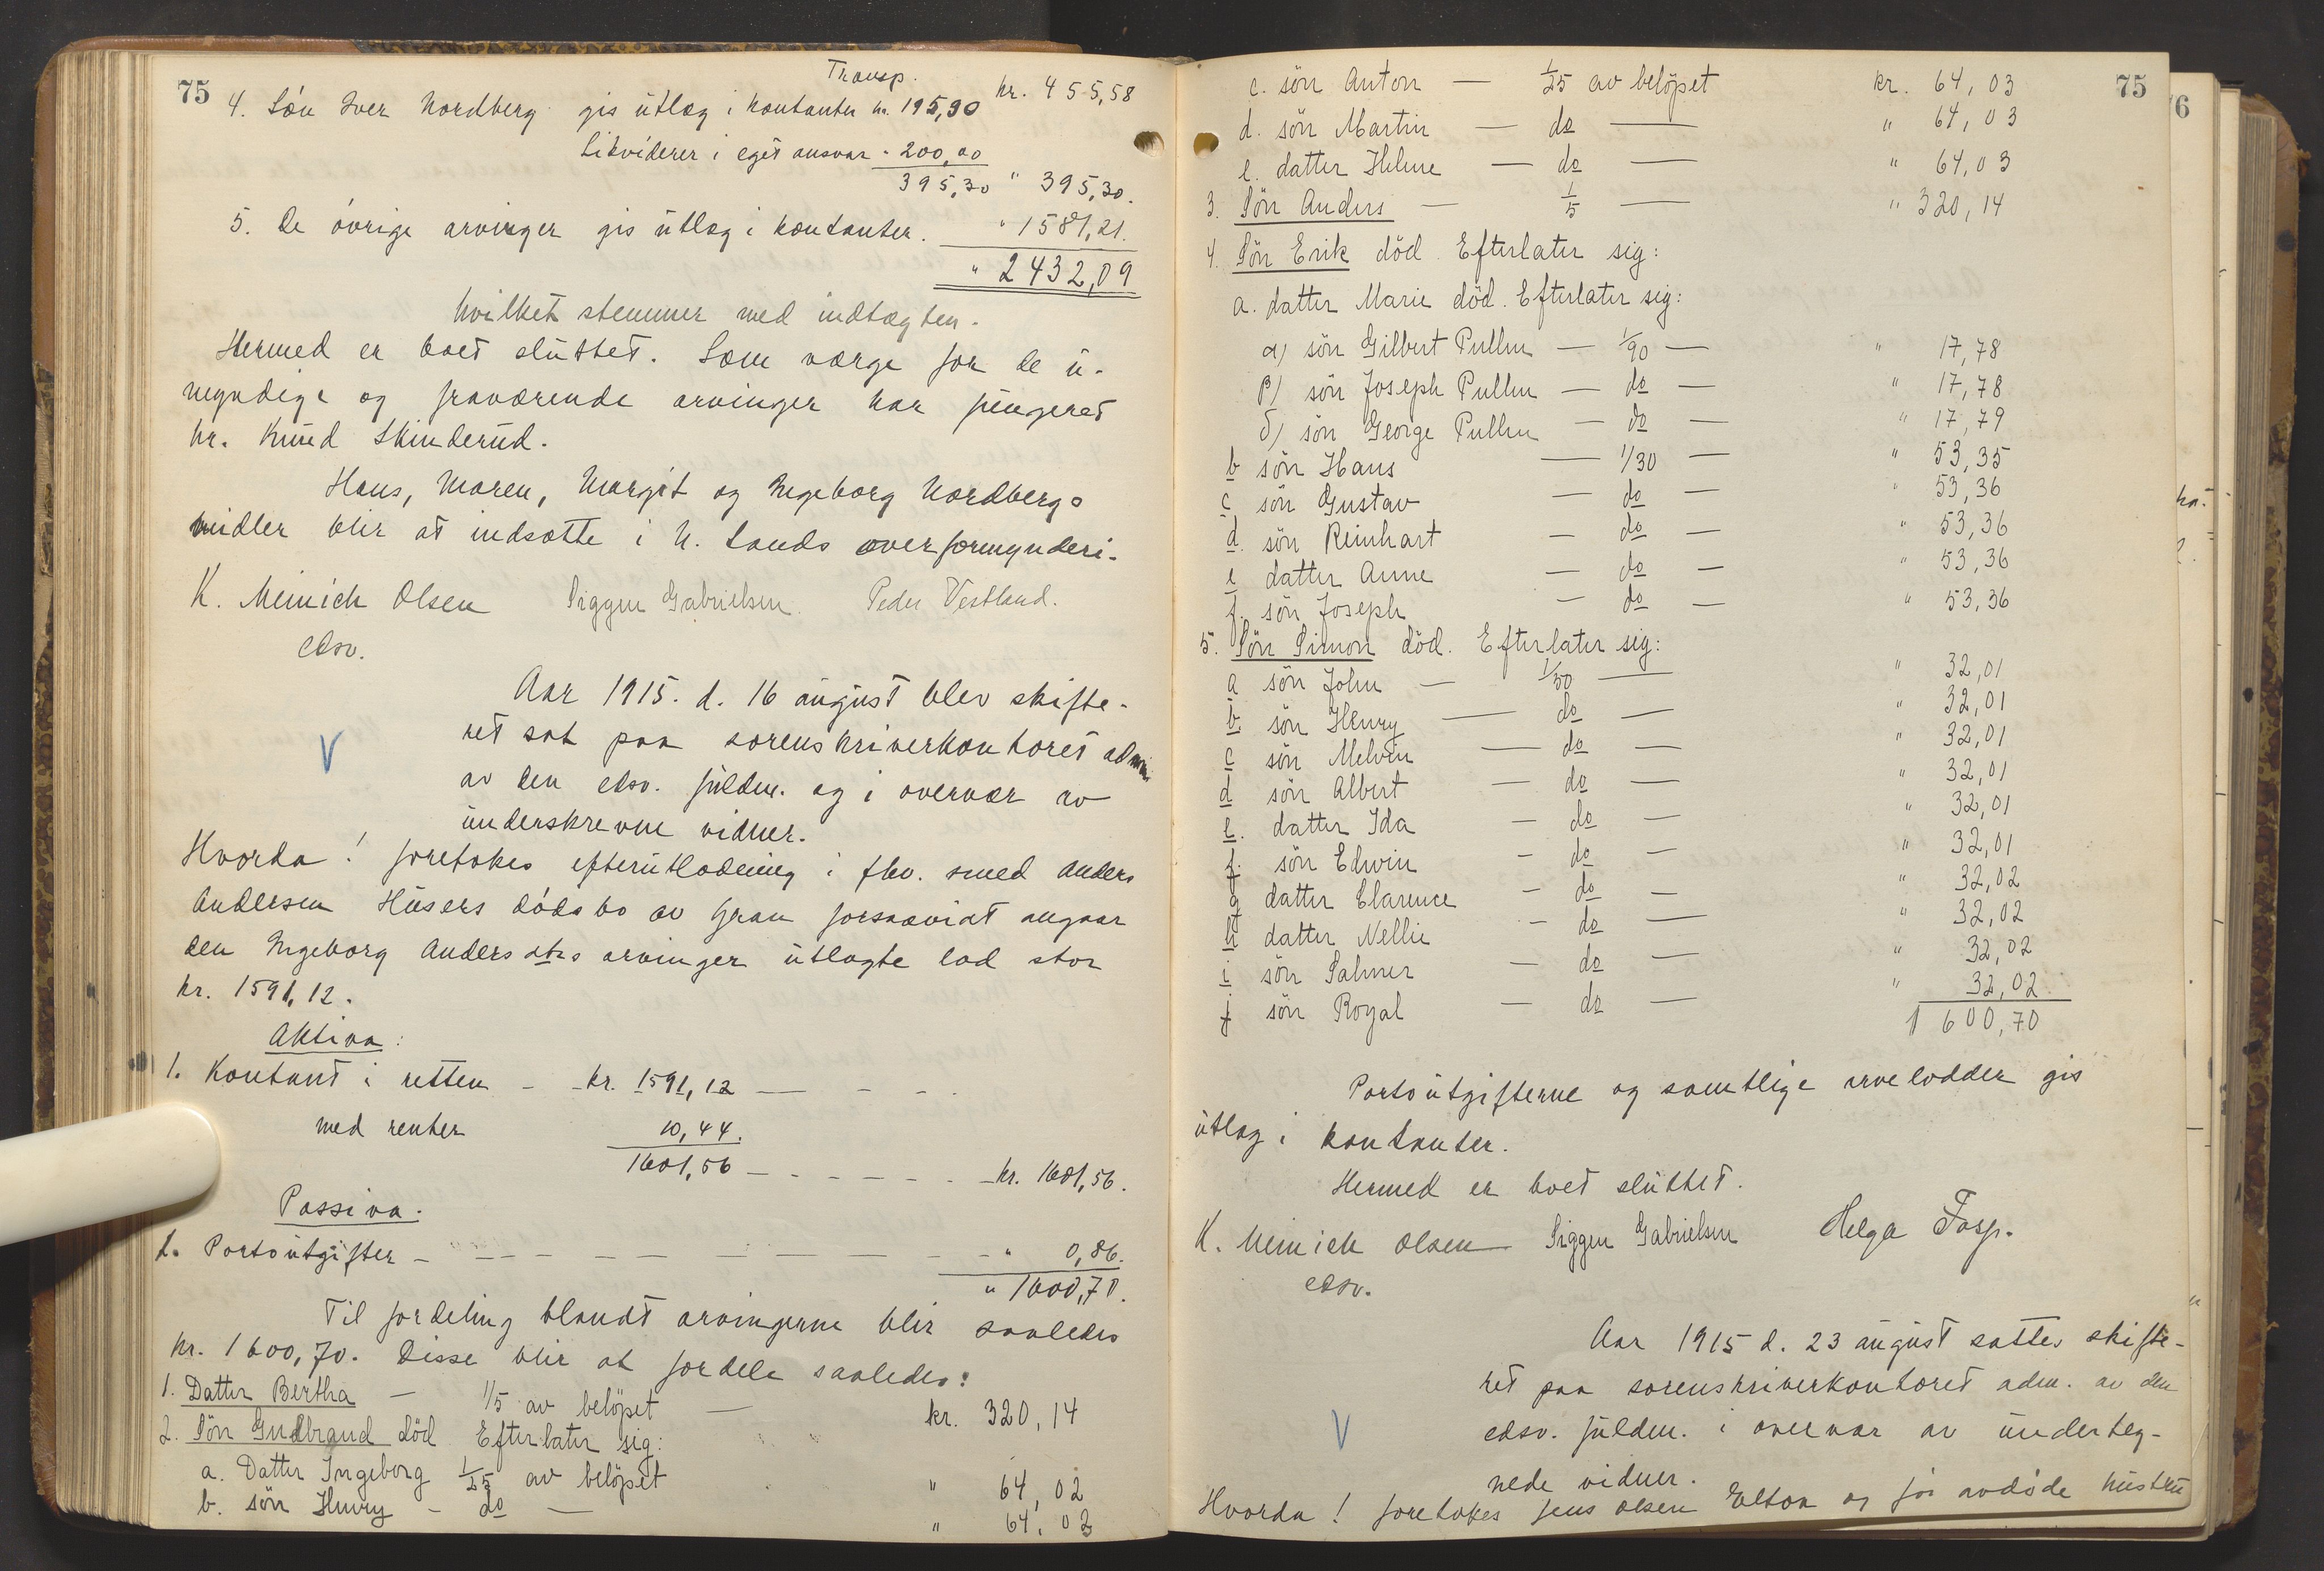 75
Transp. kr. 455,58
4. Søn Iver Nordberg gis utlæg i kontanter kr. 195,30
Likviderer i eget ansvar - 200,00
395,30 " 395,30.
5. De øvrige arvinger gis utlæg i kontanter. " 1581,21.
" 2432,09
hvilket stemmer med indtægten.
Hermed er boet sluttet. Som værge for de u-
myndige og fraværende arvinger har fungeret
hr. Knud Skinderud.
Hans, Maren, Margit og Ingeborg Nordbergs
midler blir at indsætte i N. Lands overformynderi.
K. Meinich Olsen Siggen Gabrielsen. Peder Vestland.
edsv.
Aar 1915. d. 16 august blev skifte-
ret sat paa sorenskriverkontoret adm.
av den edsv. fuldm. og i overvær av
underskrevne vidner.
V
Hvorda! foretokes efterutlodning i fhv. smed Anders
Andersen Husers dødsbo av Gran forsaavidt angaar
den Ingeborg Andersdtrs arvinger utlagte lod stor
kr. 1591,12.
Aktiva:
1. Kontant i retten - kr. 1591,12 — - -
med renter 10,44.
1601,56 - - - - - kr. 1601,56.
Passiva.
1. Portoutgifter - - - - - " 0,86.
" 1600,70.
Til fordeling blandt arvingerne blir saaledes
kr. 1600,70. Disse blir at fordele saaledes:
1. Datter Bertha - 1/5 av beløpet — kr. 320,14
2. Søn Gudbrand død. Efterlater sig:
a. Datter Ingeborg 1/25 av beløpet " 64,02
b. søn Henry - do — " 64,02
75
c. søn Anton — 1/25 av beløpet kr. 64,03
d. søn Martin — do — " 64,03
e. datter Helene — do — " 64,03
3. Søn Anders — 1/5 — " 320,14
4. Søn Erik død. Efterlater sig:
a. datter Marie død. Efterlater sig:
α) søn Gilbert Pullen — 1/90 — " 17,78
β) søn Joseph Pullen — do — " 17,78
δ) søn George Pullen — do — " 17,79
b søn Hans — 1/30 — " 53,35
c søn Gustav — do — " 53,36
d. søn Reinhart — do — " 53,36
e datter Anne — do — " 53,36
f. søn Joseph — do — " 53,36
5. Søn Simon død. Efterlater sig:
a søn John — 1/50 — " 32,01
b. søn Henry — do — " 32,01
c søn Melvin — do — " 32,01
d søn Albert — do — " 32,01
e. datter Ida — do — " 32,01
f. søn Edwin — do — " 32,01
g datter Clarence — do — " 32,02
h datter Nellie — do — " 32,02
i søn Palmer — do — " 32,02
j søn Royal — do — " 32,02.
1600,70
Portoutgifterne og samtlige arvelodder gis
utlæg i kontanter.
Hermed er boet sluttet.
K. Meinich Olsen Siggen Gabrielsen Helga Fosp.
edsv.
Aar 1915 d. 23 august sattes skifte-
ret paa sorenskriverkontoret adm. av den
edsv. fuldm. i overvær av underteg-
nede vidner.
V
Hvorda! foretokes Jens Olsen Elton og før avdøde hustru
76